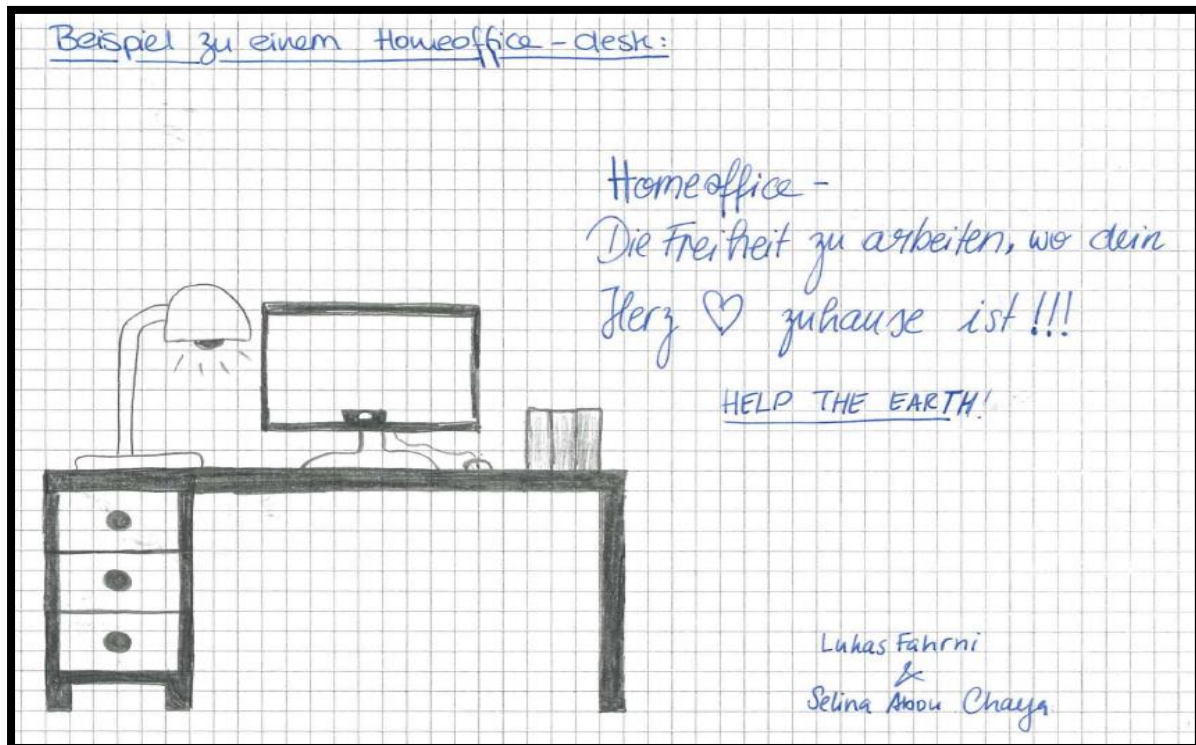 Beispiel zu einem Homeoffice-desk:
Homeoffice -
Die Freiheit zu arbeiten, wo dein
Herz ♡ zuhause ist!!!
HELP THE EARTH!
Lukas Fahrni
&
Selina Abou Chaya